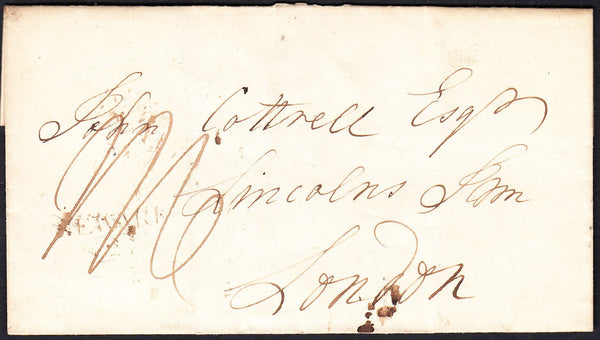 John Cottrell Esqr
Lincolns Inn
NEWARK
London